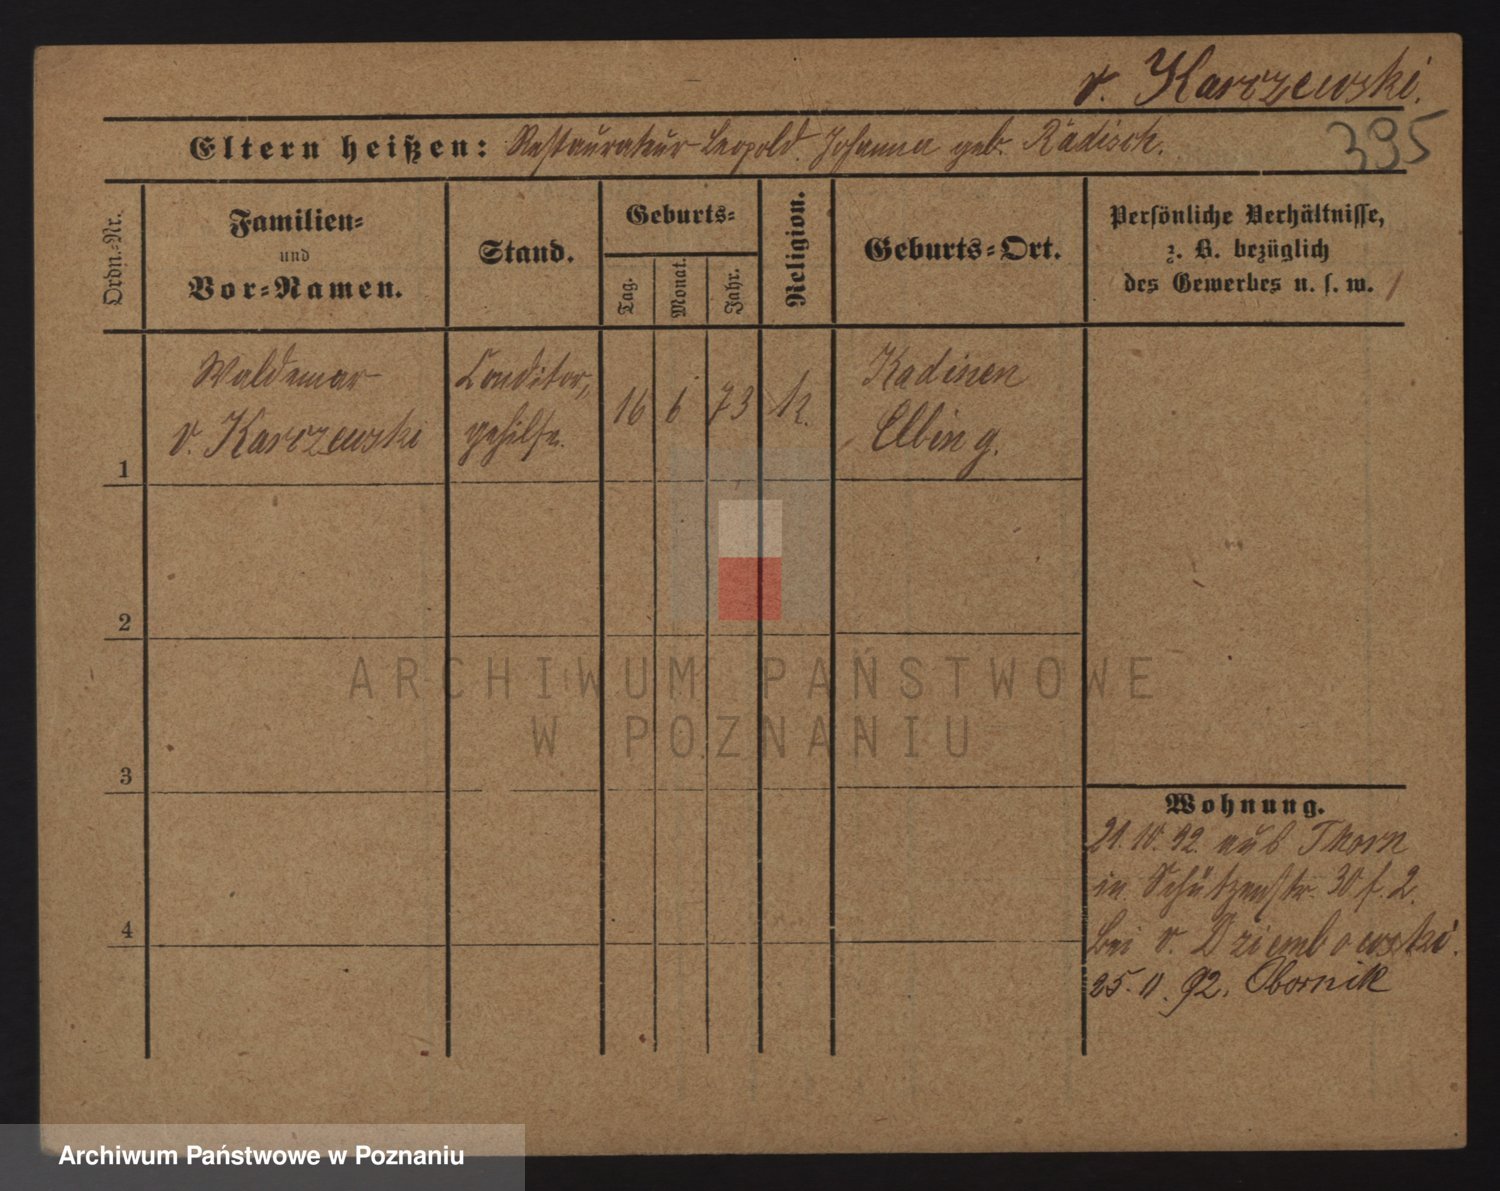 v. Karczewski.
395
Eltern heißen: Restaurateur Leopold. Johanna geb. Rädisch.
Ordn.=Nr.
Familien=
und
Vor=Namen.
Stand.
Geburts=
Tag.
Monat.
Jahr.
Religion.
Geburts=Ort.
Persönliche Verhältnisse,
z. B. bezüglich
des Gewerbes u. s. w. 1
Waldemar
v. Karczewski
Conditor,
gehilfe.
16 6 73 k.
Kadinen
Elbing.
1
2
3
4
Wohnung.
21. 10. 92 aus Thorn
in Schützenstr. 30 f. 2.
bei v. Dziembowski.
25. 11. 92. Obornik
ARCHIWUM PAŃSTWOWE
W POZNANIU
Archiwum Państwowe w Poznaniu